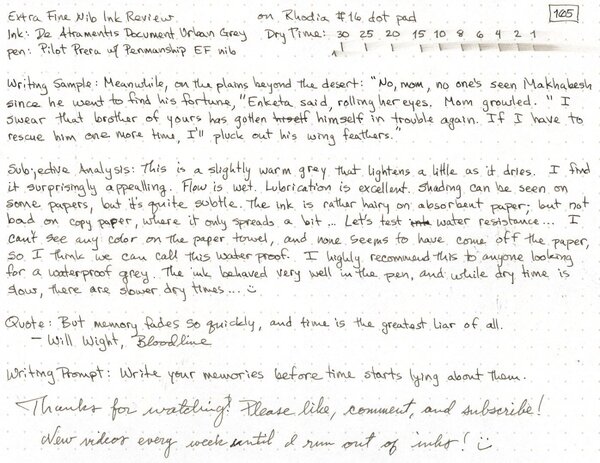 Extra Fine Nib Ink Review on Rhodia #16 dot pad 165
Ink: De Atramentis Document Urban Grey Dry Time: 30 25 20 15 10 8 6 4 2 1
pen: Pilot Prera w/ Penmanship EF nib
Writing Sample: Meanwhile, on the plains beyond the desert: "No, mom, no one's seen Makhabesh
since he went to find his fortune," Enketa said, rolling her eyes. Mom growled. "I
swear that brother of yours has gotten itself himself in trouble again. If I have to
rescue him one more time, I'll pluck out his wing feathers."
Subjective Analysis: This is a slightly warm grey that lightens a little as it dries. I find
it surprisingly appealling. Flow is wet. Lubrication is excellent. Shading can be seen on
some papers, but it's quite subtle. The ink is rather hairy on absorbent paper; but not
bad on copy paper, where it only spreads a bit... Let's test ink water resistance... I
can't see any color on the paper towel, and none seems to have come off the paper,
so I think we can call this waterproof. I highly recommend this to anyone looking
for a waterproof grey. The ink behaved very well in the pen, and while dry time is
slow, there are slower dry times...
Quote: But memory fades so quickly, and time is the greatest liar of all.
- Will Wight, Bloodline
Writing Prompt: Write your memories before time starts lying about them.
Thanks for watching! Please like, comment, and subscribe!
New videos every week until I run out of inks!